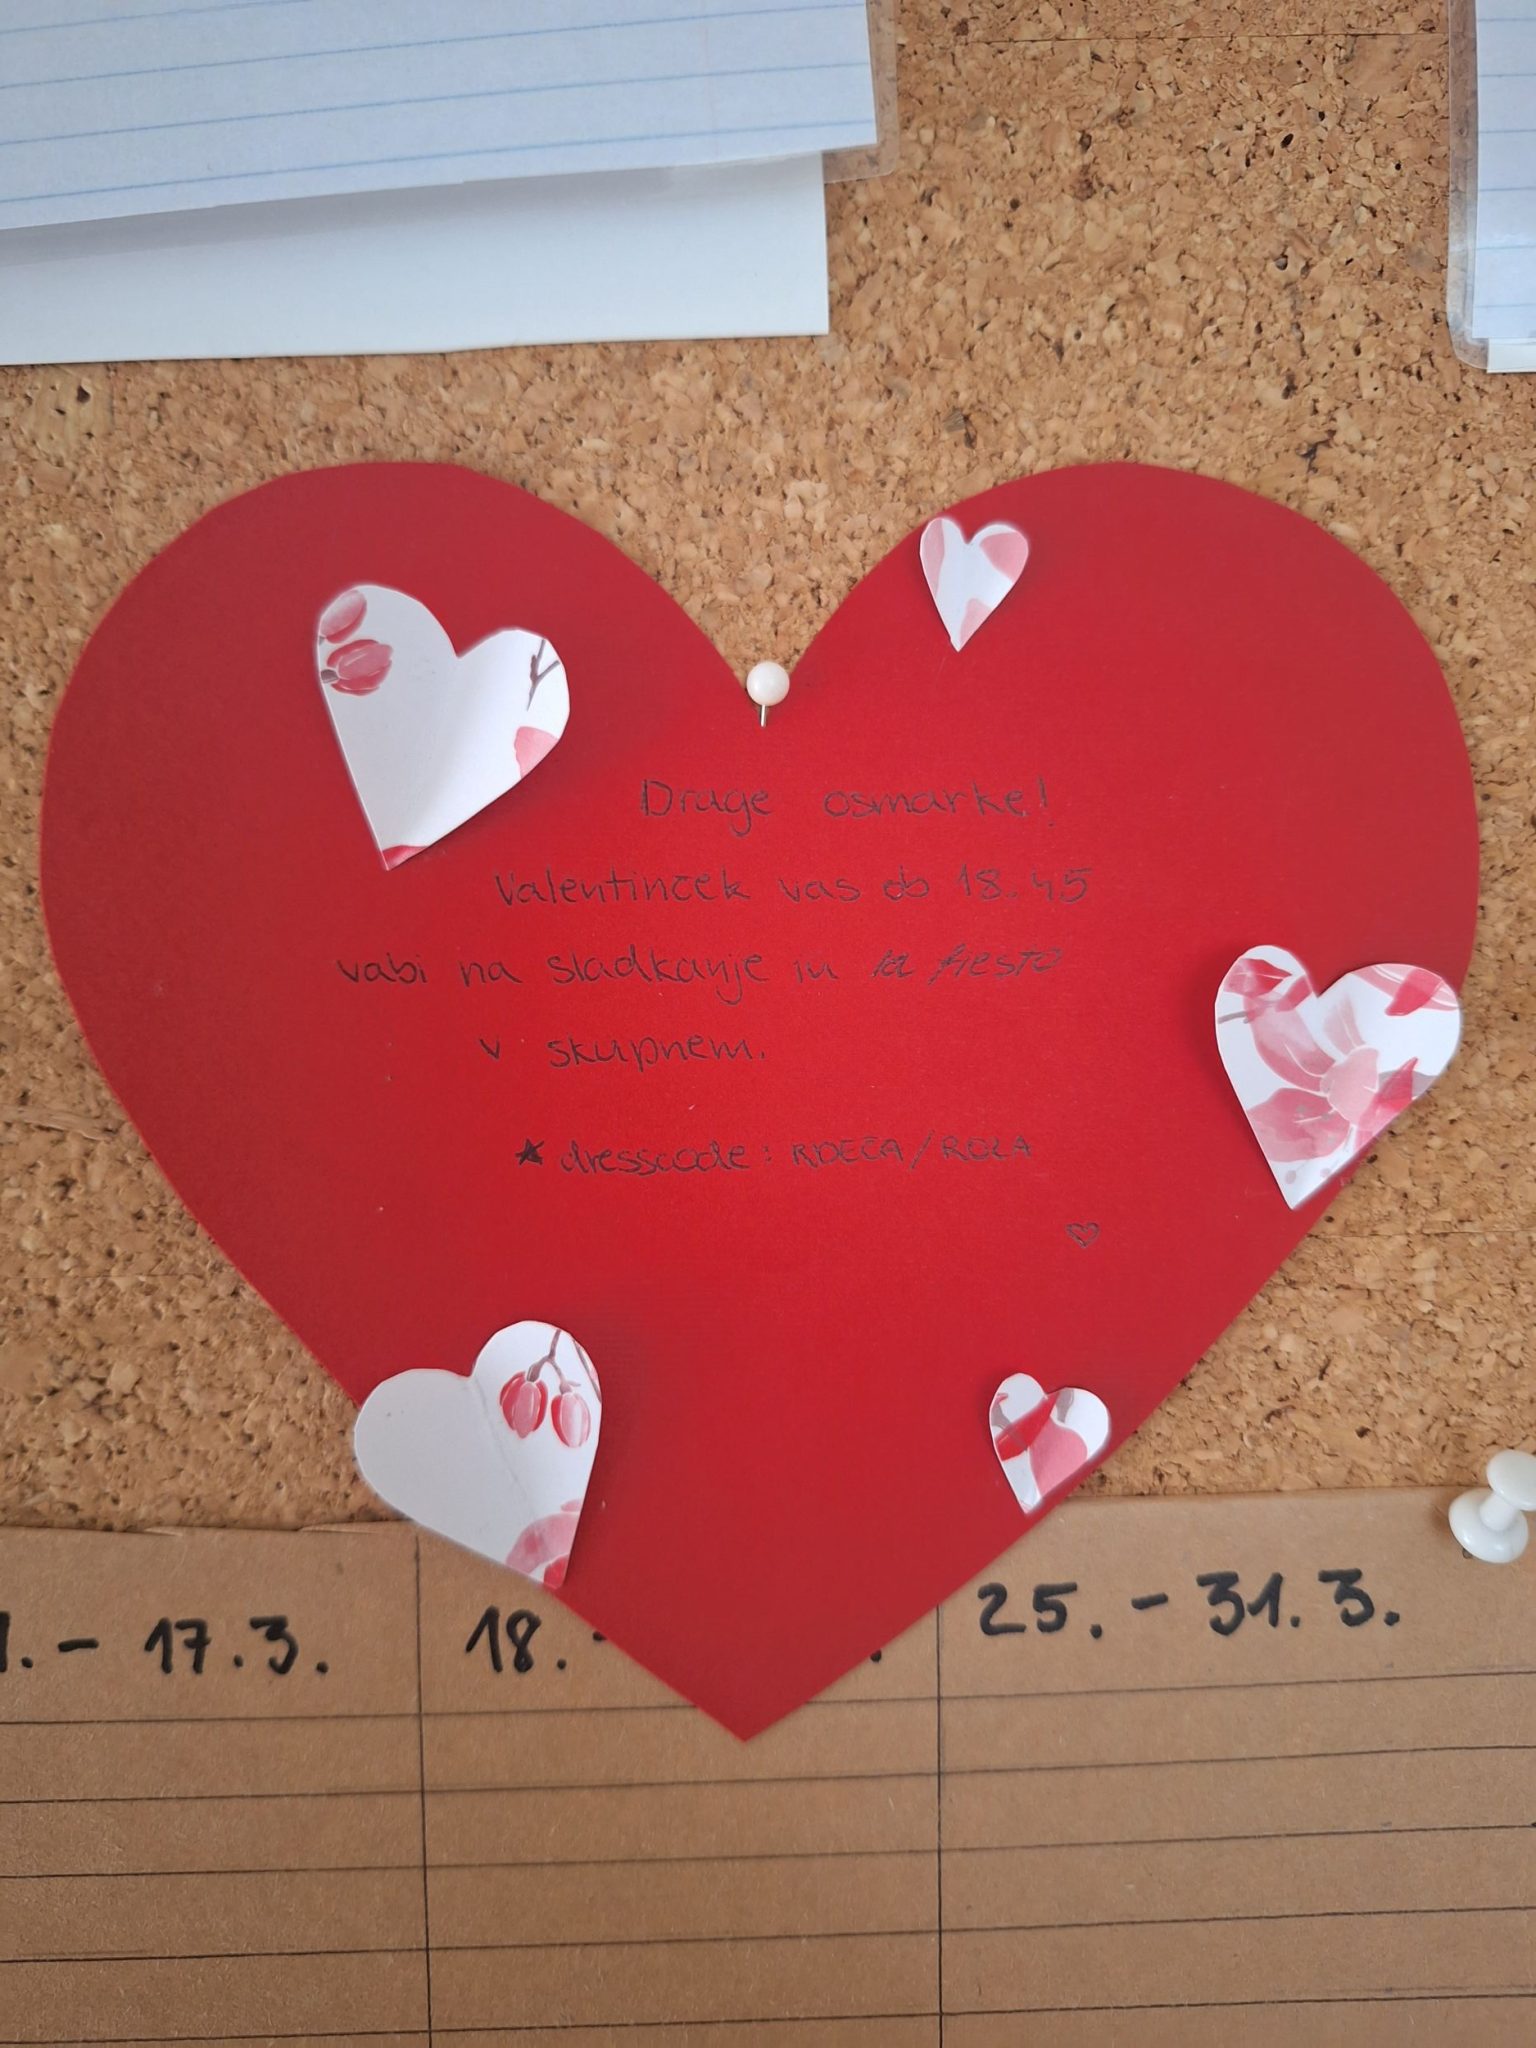 Drage osmarke!
Valentinček vas ob 18.45
vabi na sladkanje in la fiesto
v skupnem.
* dresscode: RDEČA/ROZA
1. - 17.3.
18. -
25. - 31.3.